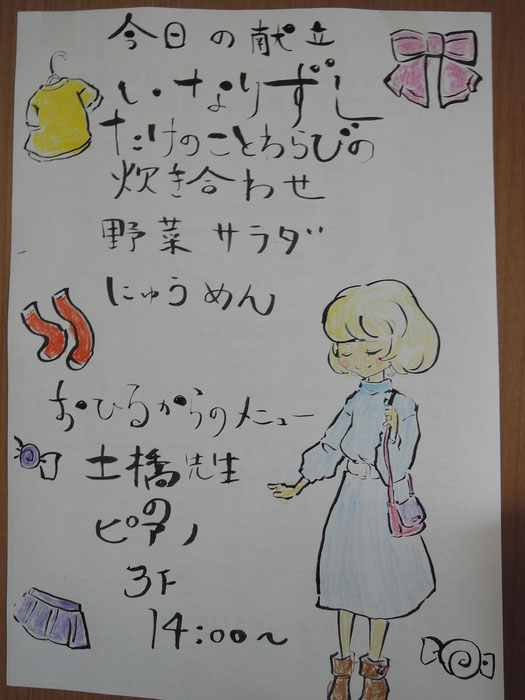 今日の献立
いなりずし
たけのことわらびの
炊き合わせ
野菜サラダ
にゅうめん
おひるからのメニュー
土橋先生
の
ピアノ
3F
14:00〜